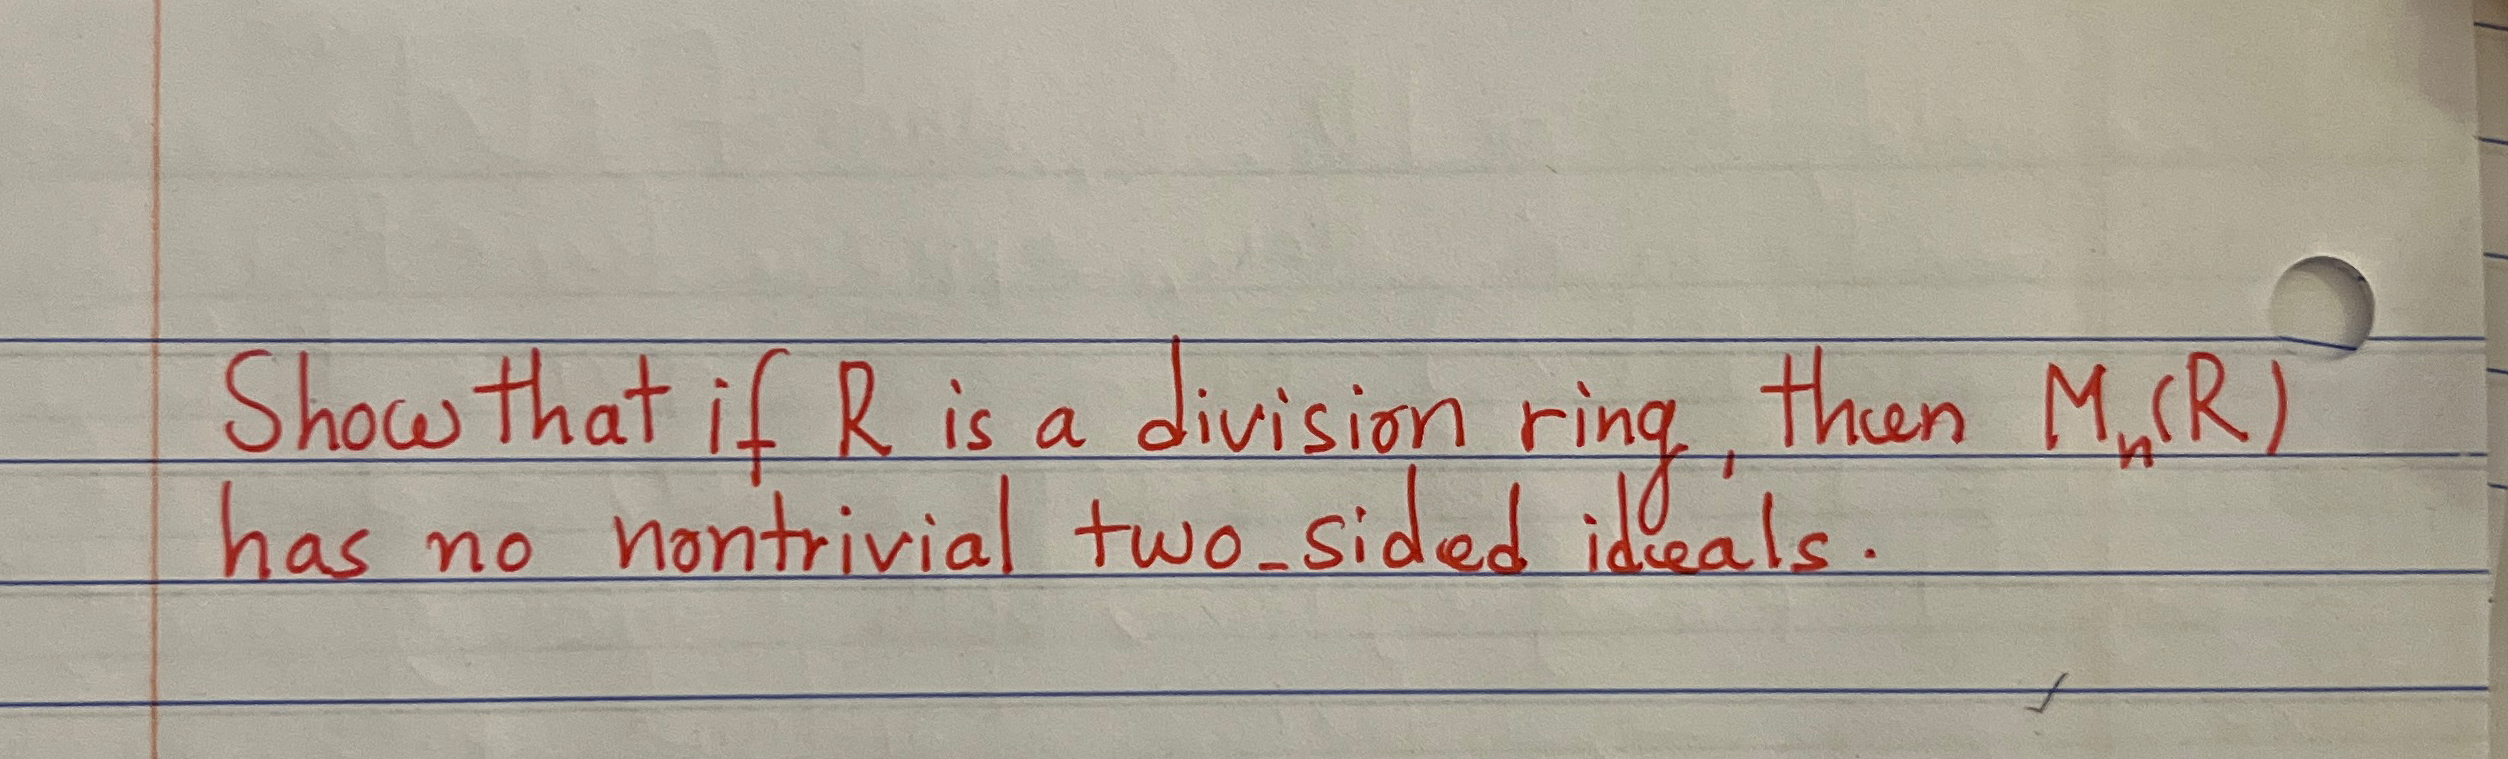 Show that if R is a division ring, then Mn(R)
has no nontrivial two-sided ideals.